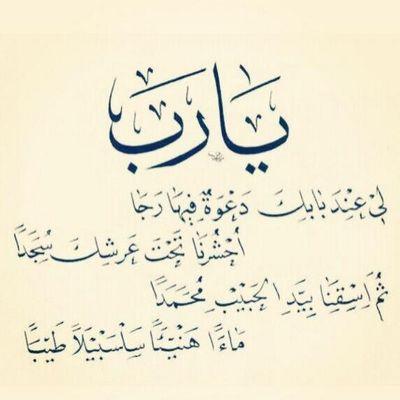 يَا رَبّ
لِيْ عِنْدَ بَابِكَ دَعْوَةٌ فِيْهَا رَجَا
اُحْشُرْنَا تَحْتَ عَرشِكَ سُجَدًا
ثُمَ اَسْقِنَا بِيَدِ الحَبِيْبِ مُحَمَدًا
مَاءًا هَنْيْئًا سَلْسَبِيْلَاً طَيِبًا